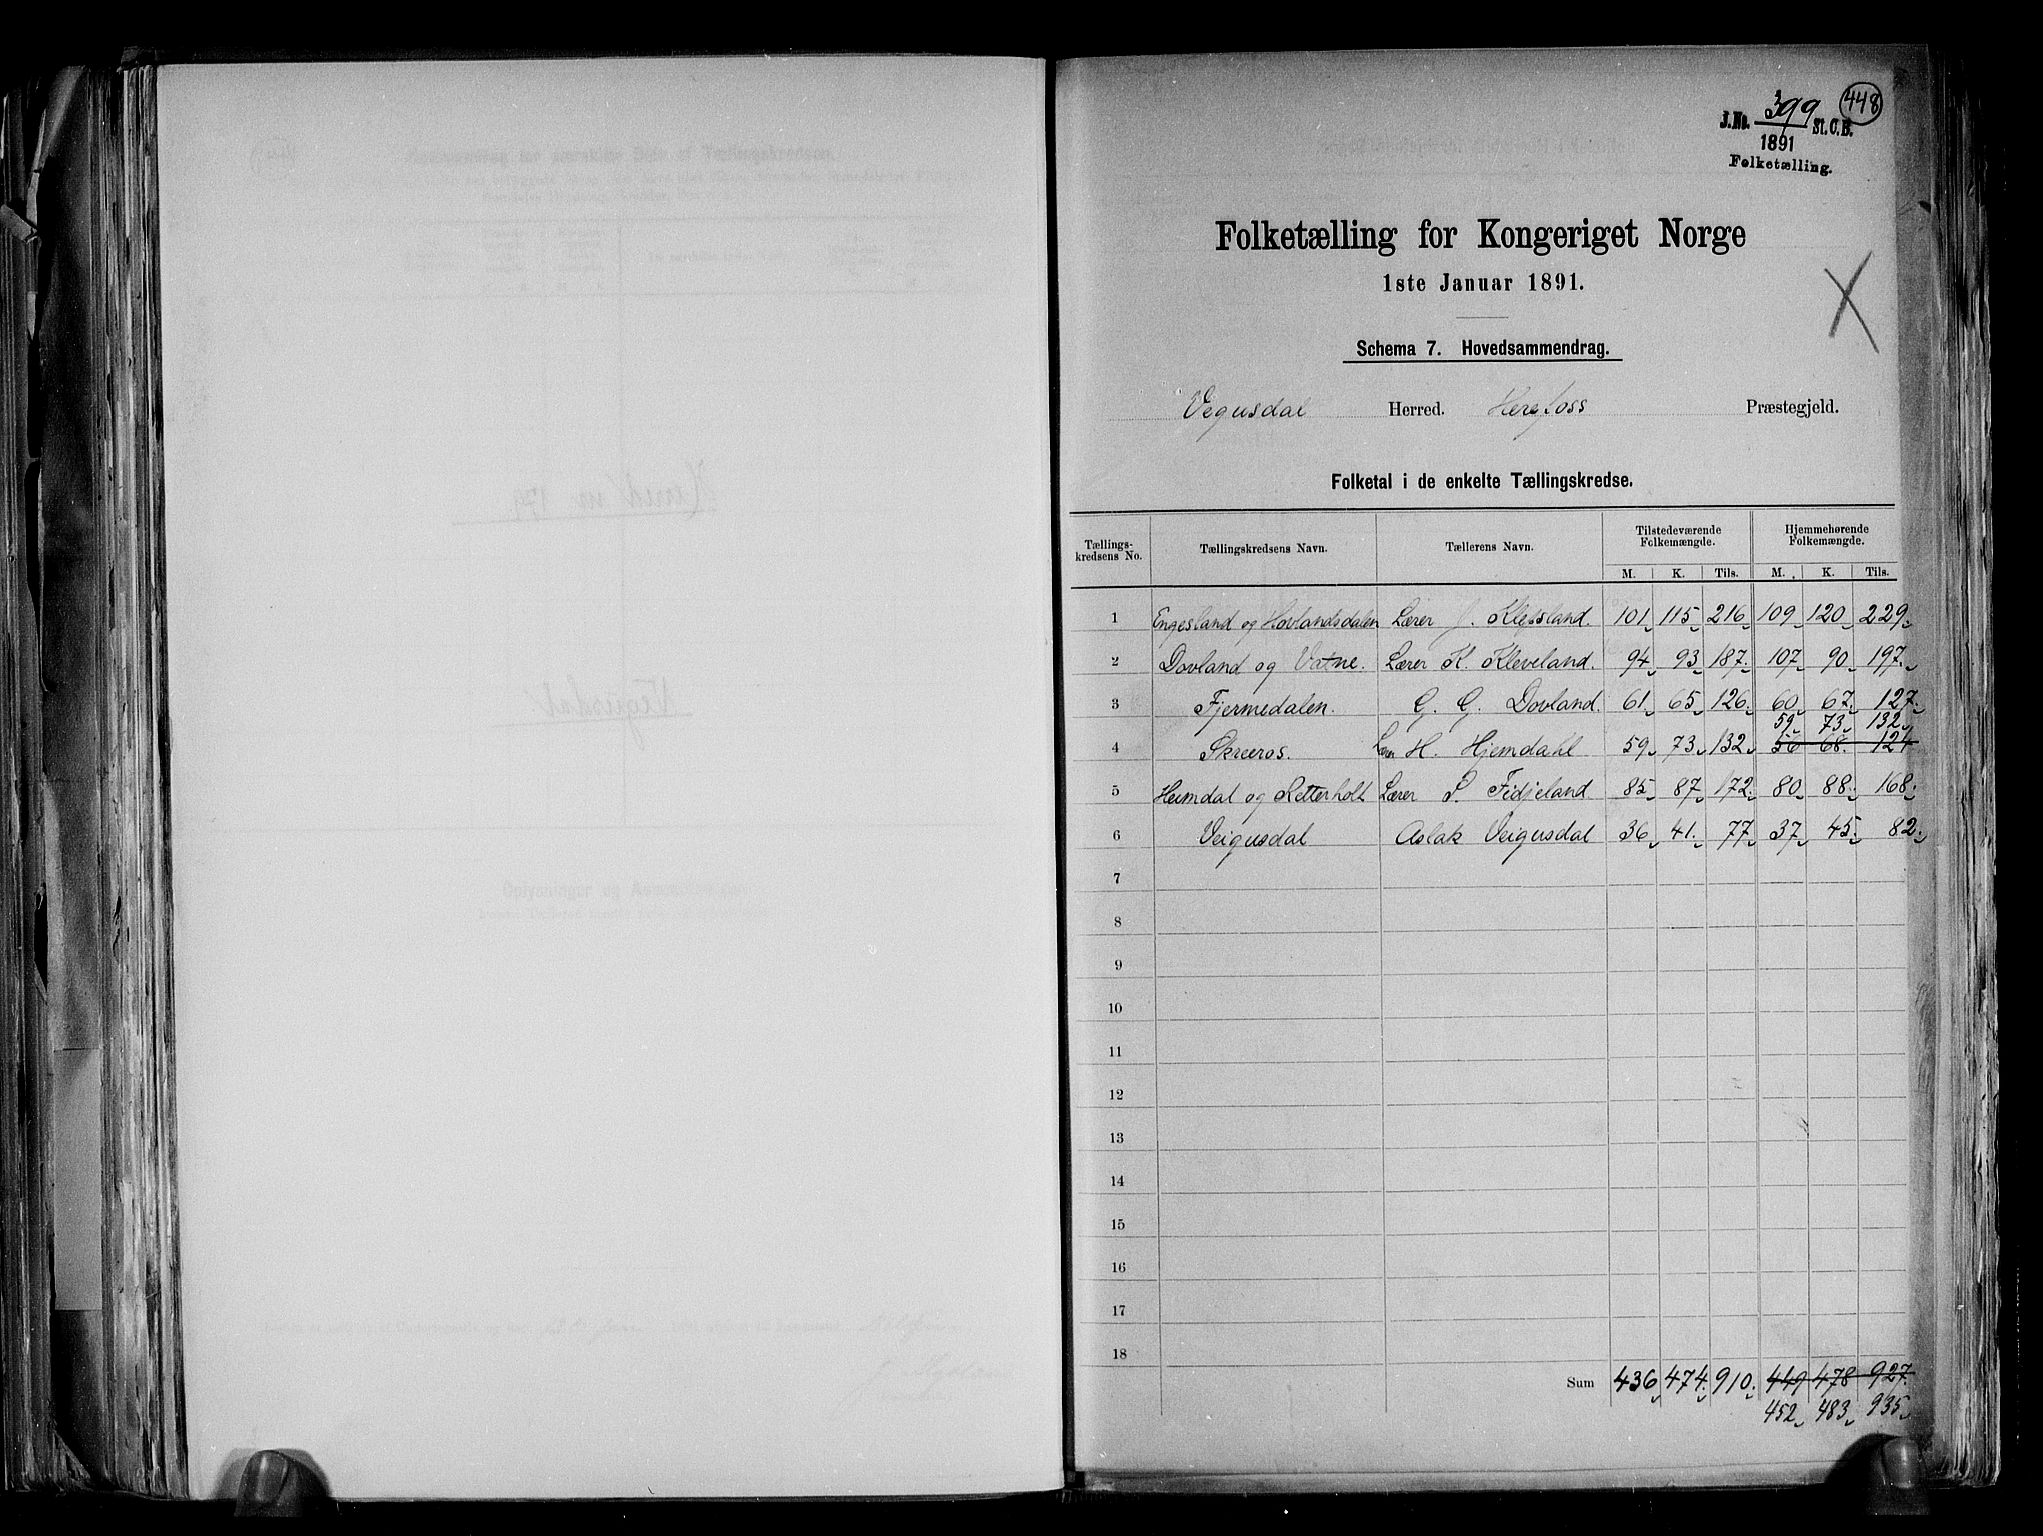 448
J.No. 399 St.C.B.
1891
Folketælling.
Folketælling for Kongeriget Norge
1ste Januar 1891.
Schema 7. Hovedsammendrag.
Vegusdal Herred. Herefoss Præstegjeld.
Folketal i de enkelte Tællingskredse.
Tællings-kredsens No. Tællingskredsens Navn. Tællerens Navn. Tilstedeværende Folkemængde. Hjemmehørende Folkemængde.
M. K. Tils. M. K. Tils.
1 Engesland og Hovlandsdalen Lærer J. Klepsland. 101 115 216 109 120 229
2 Dovland og Vatne. Lærer K. Kleveland. 94 93 187 107 90 197
3 Fjermedalen. G. G. Dovland. 61 65 126 60 67 127
59 73 132
4 Skreros. Lærer H. Hjemdahl 59 73 132 56 68 124
5 Heimdal og Retterholt Lærer S. Fidjeland 85 87 172 80 88 168
6 Veigusdal Aslak Veigusdal 36 41 77 37 45 82
7
8
9
10
11
12
13
14
15
16
17
18
Sum 436 474 910 449 478 927
452 483 935